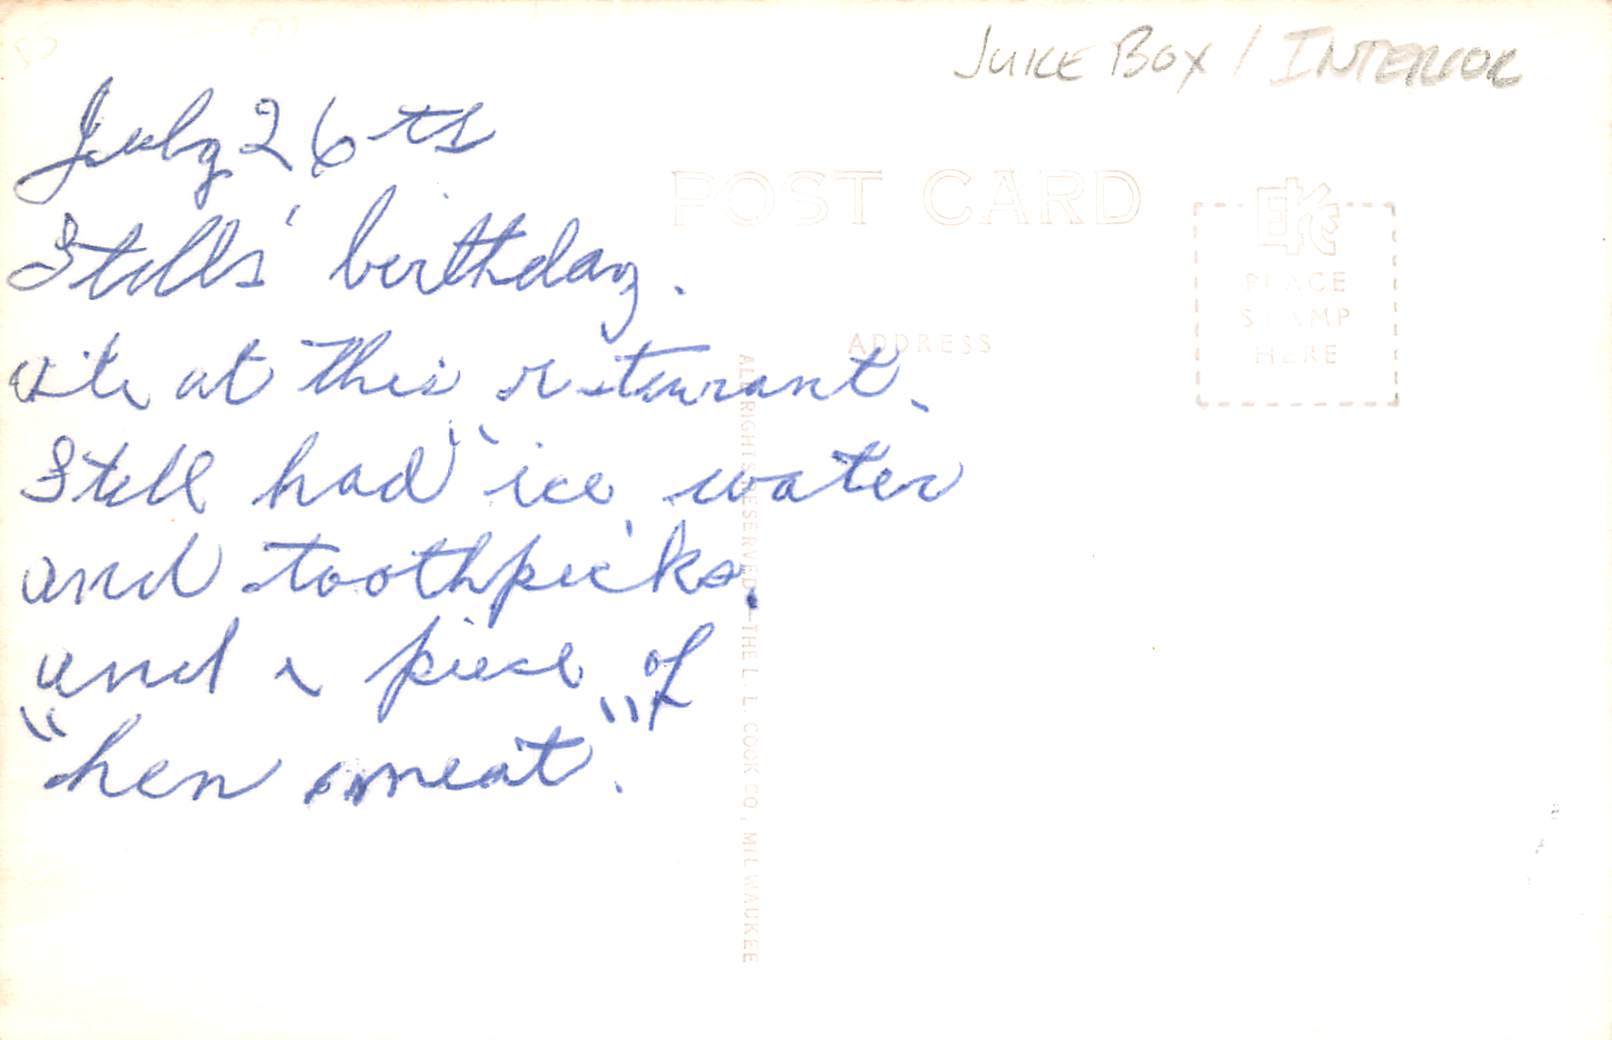 JUKE BOX / INTERIOR
July 26th
Stells' birthday.
ate at this resturant.
Stell had "ice water
and toothpicks.
and a piece of
"hen meat".
POST CARD
EKC
PLACE
STAMP
HERE
ADDRESS
ALL RIGHTS RESERVED—THE L. L. COOK CO., MILWAUKEE